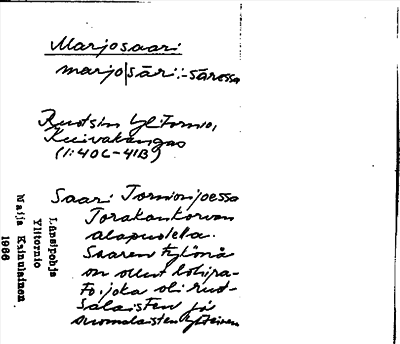 Marjosaari:
marjo|sāri: -sāressa
Ruotsin Ylitornio,
Kuivakangas
(1:40C-41B)
Saari Tornionjoessa
Torakankorvan
alapuolella.
Saaren tyvenä
on ollut lohipa-
to, joka oli ruot-
salaisten ja
suomalaisten yhteinen
Länsipohja
Ylitornio
Maija Kainulainen
1966